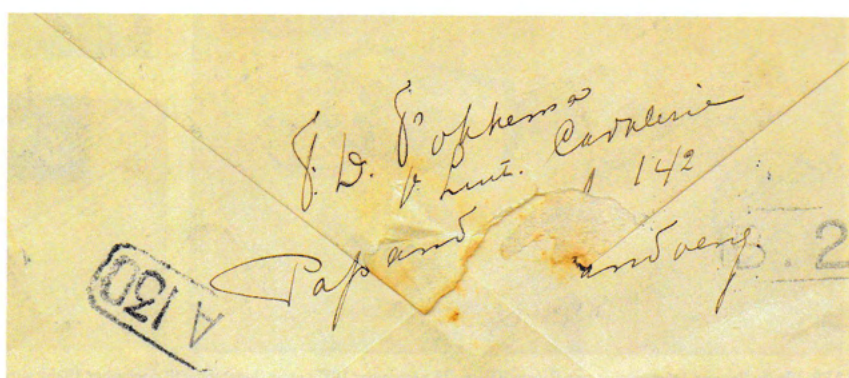 F. D. Fokkema
Luit. Cavalerie
142
Papand andoeng.
A 130
B. 2